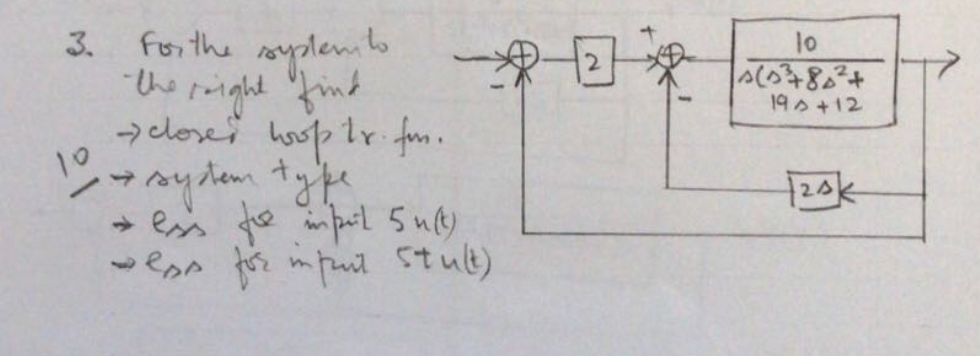 3. For the system to
the right find
→ closed loop tr. fun.
10
→ system type
→ ess for input 5 u(t)
→ ess for input 5t u(t)
+
-
2
+
-
10
s(s³+8s²+
19s+12
2s